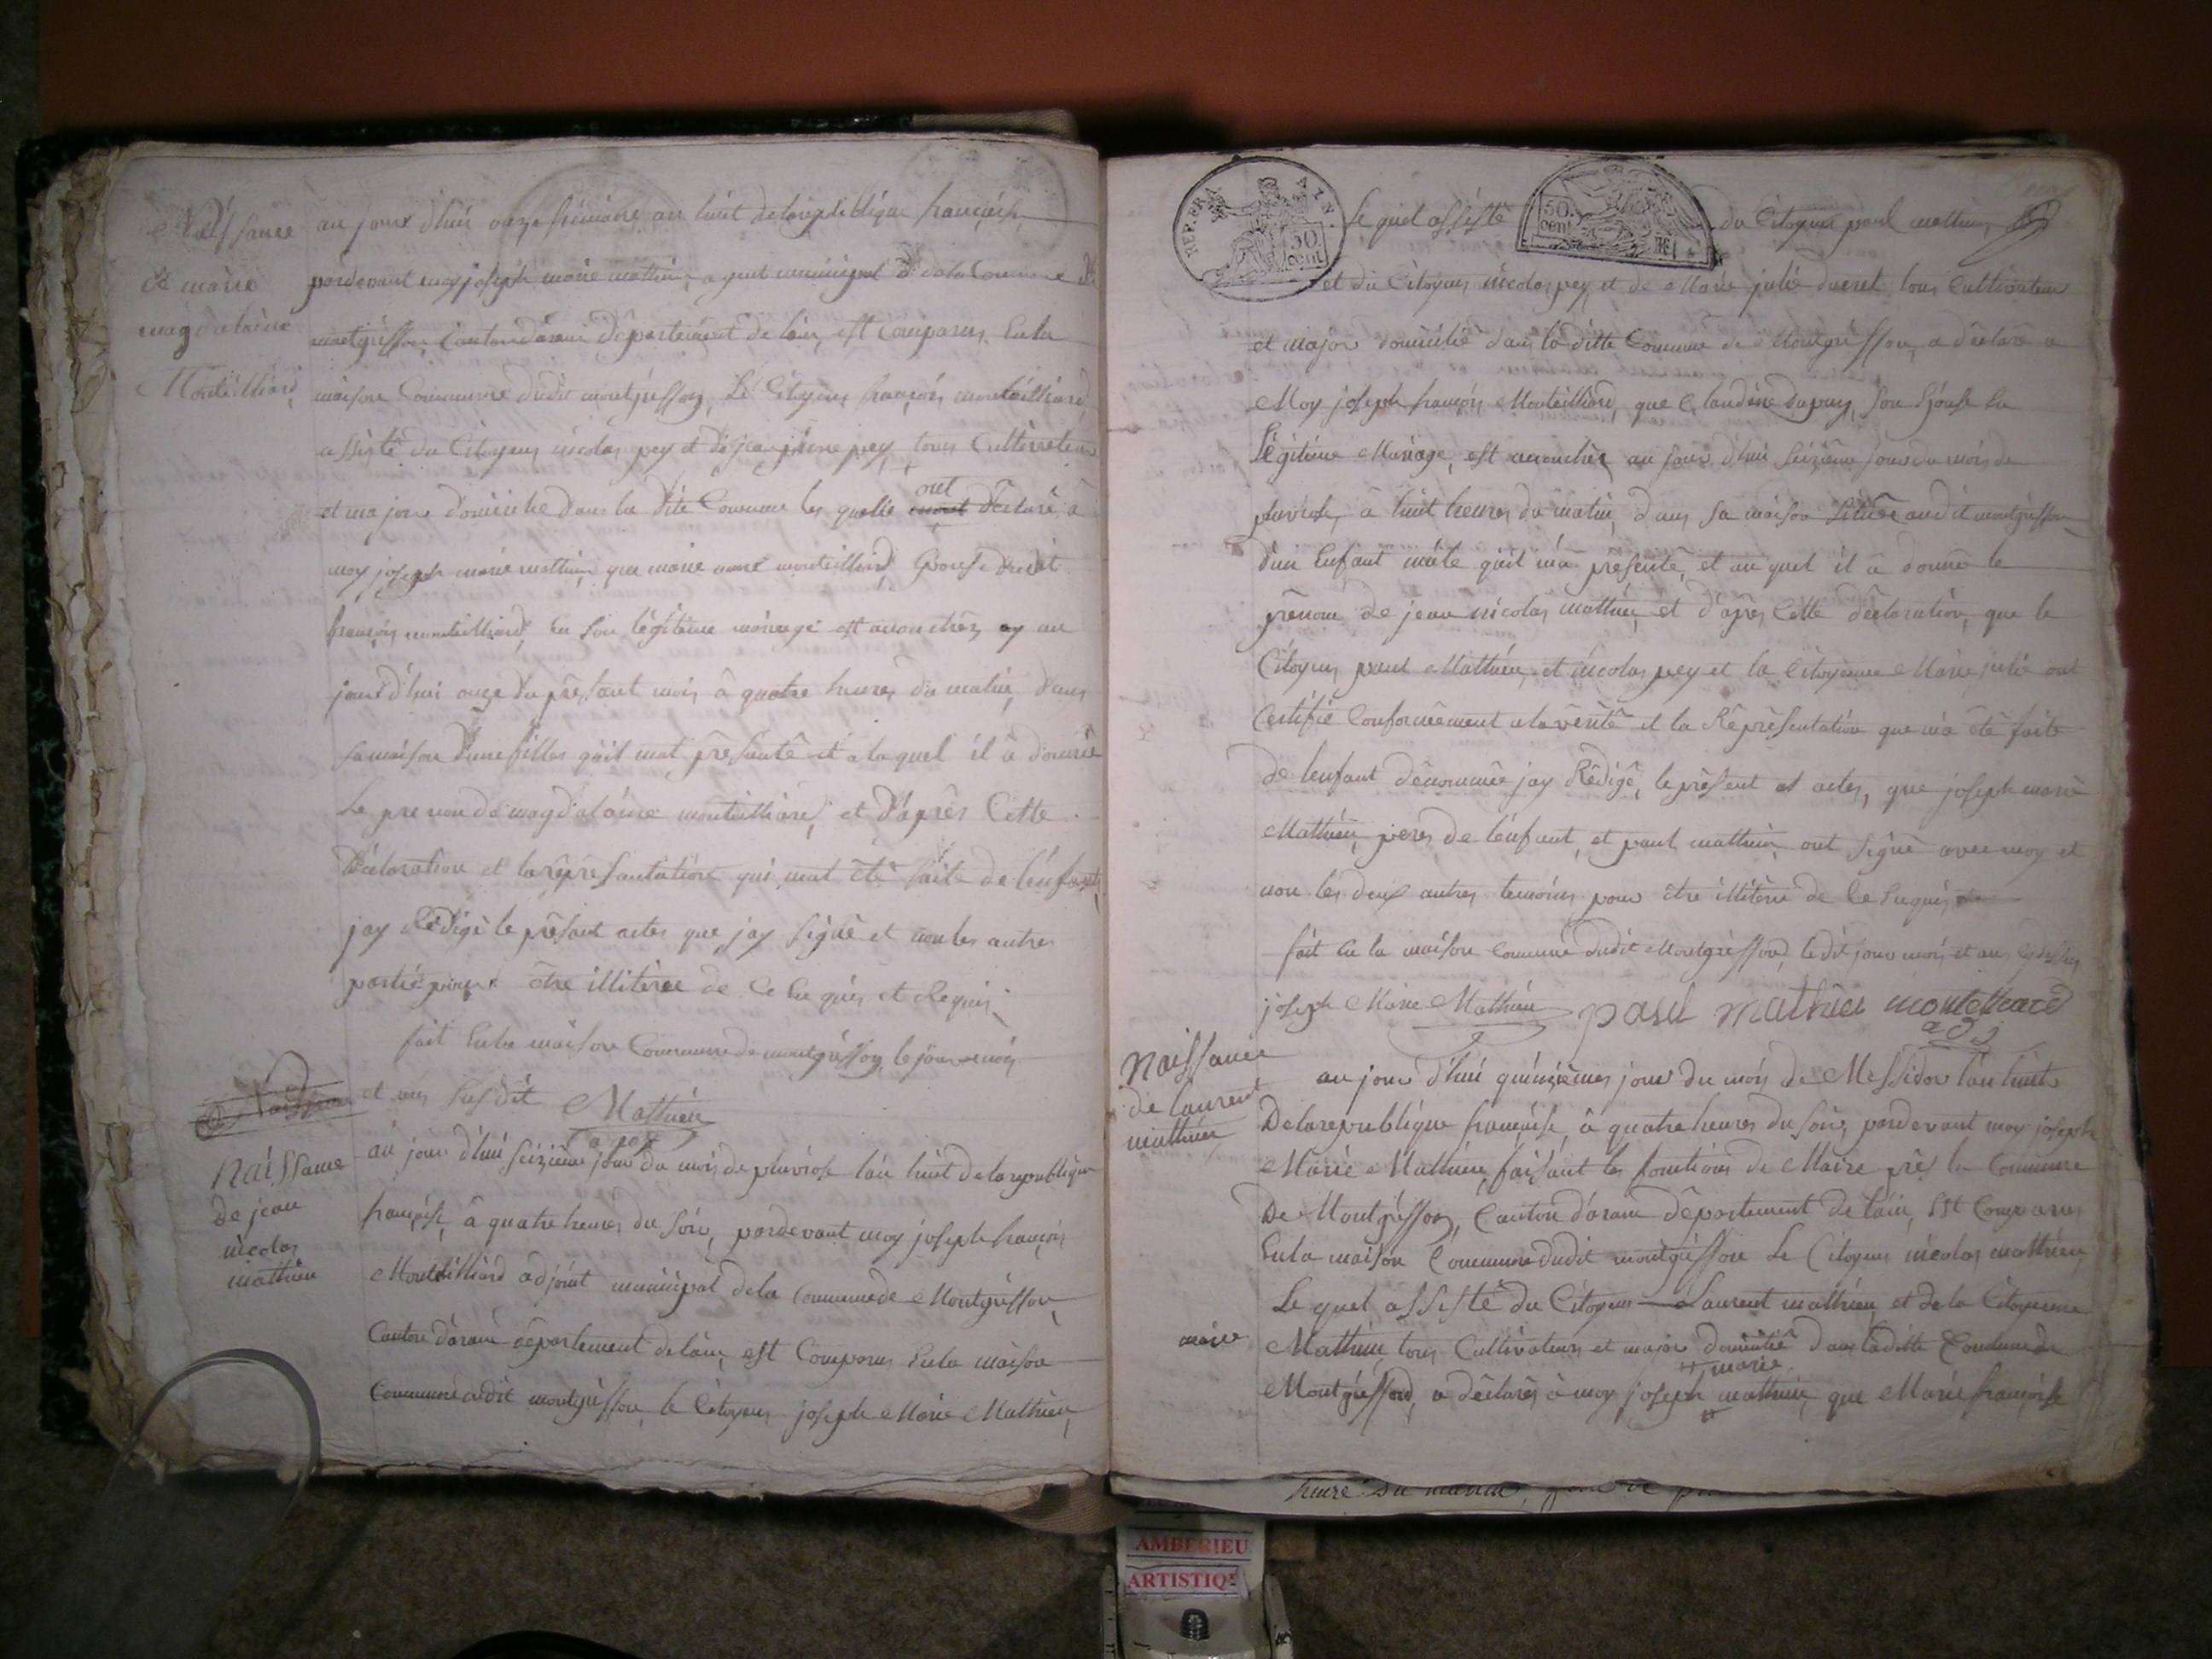 Naissance
de marie
magdalaine
Monteilliard
au jour d'hui onze frimaire an huit de la république françaisse
pardevant moy joseph marie mathieu, agent municipal de la Commune de
montgriffon, Canton d'arane département de lain, est comparus, En la
maison Commune dudit montgriffon, Le Citoyens françois monteilliard,
assisté du Citoyens nicolas pey et de pey, tous Cultivateur
et majore domicilié dans la dite Commune les quelle ont déclaré à
moy joseph marie mathieu que marie monteilliard Epouse dudit
françois monteilliard, En son légitime mariage est accouchéz au
jour d'hui onze du présant mois à quatre heures du matin, dans
sa maison d'une filles qu'il mat présenté et a laquel il a donnée
Le prenon de magdalaine monteilliard, et d'après Cette
Déclaration et la représantation qui mat été faite de l'enfants
jay Rédigé le présant actes que jay signé et non les autres
partié pour être illitérée de Ce Enquis et Requis
fait En la maison Commune de montgriffon, le jour mois
et ans susdit Mathieu
agent
Naissance
de jean
nicolas
mathieu
au jour d'hui seizième jour du mois de pluviose l'an huit de la republique
françaisse, à quatre heures du soir, pardevant moy joseph françois
Monteilliard adjoint municipal de la Commune de Montgriffon,
Canton d'arane département de lain, est Comparus En la maison
Commune dudit montgriffon, le Citoyens joseph Marie Mathieu,
REP. FRA
50 cent
Le quel assisté
50. cent
du Citoyens paul mathieu
et du Citoyens nicolas pey, et de Marie julie ducret tous Cultivateur
et major domicilié dans la ditte Commune de Montgriffon, a déclaré a
Moy joseph françois Monteilliard, que Claudine dupuy, son Epouse En
Légitime Mariage, est accouchez au jour d'hui seizième jour du mois de
pluviose, à huit heures du matin, dans sa maison située audit montgriffon
d'un Enfant male qu'il m'a présenté, et au quel il a donné le
prénom de jean nicolas mathieu, et d'après Cette déclaration, que le
Citoyens paul Mathieu, et nicolas pey et la Citoyenne Marie julie ont
Certifié Conformément a la vérité et la Réprésentation que m'a été faite
de lenfant dénommée jay Rédigé, le présent actes, que joseph marie
Mathieu, peres de l'enfant, et paul mathieu, ont signé avec moy et
non les deux autres temoins pour être illitéré de Ce Enquis
fait En la maison Commune dudit Montgriffond, ledit jour mois et ans cy dessus
joseph Marie Mathieu paul mathieu monteilliard
adj
Naissance
de laurent
mathieu
au jour d'hui quinzièmes jour du mois de Messidor l'an huit
De la republique françaisse, à quatre heures du soir, pardevant moy joseph
Marie Mathieu, faisant les fonctions de Maire près la Commune
De Montgriffon, Canton d'arane département de l'ain, Est Comparus
En la maison Commune dudit montgriffon Le Citoyens nicolas mathieu,
Le quel assisté du Citoyens Laurent mathieu et de la Citoyenne
marie
Mathieu, tous Cultivateurs et major domicilié dans la ditte Commune de
marie
Montgriffond, a déclarés à moy joseph mathieu, que Marie françoisse
heure du matin,
AMBERIEU
ARTISTIQ